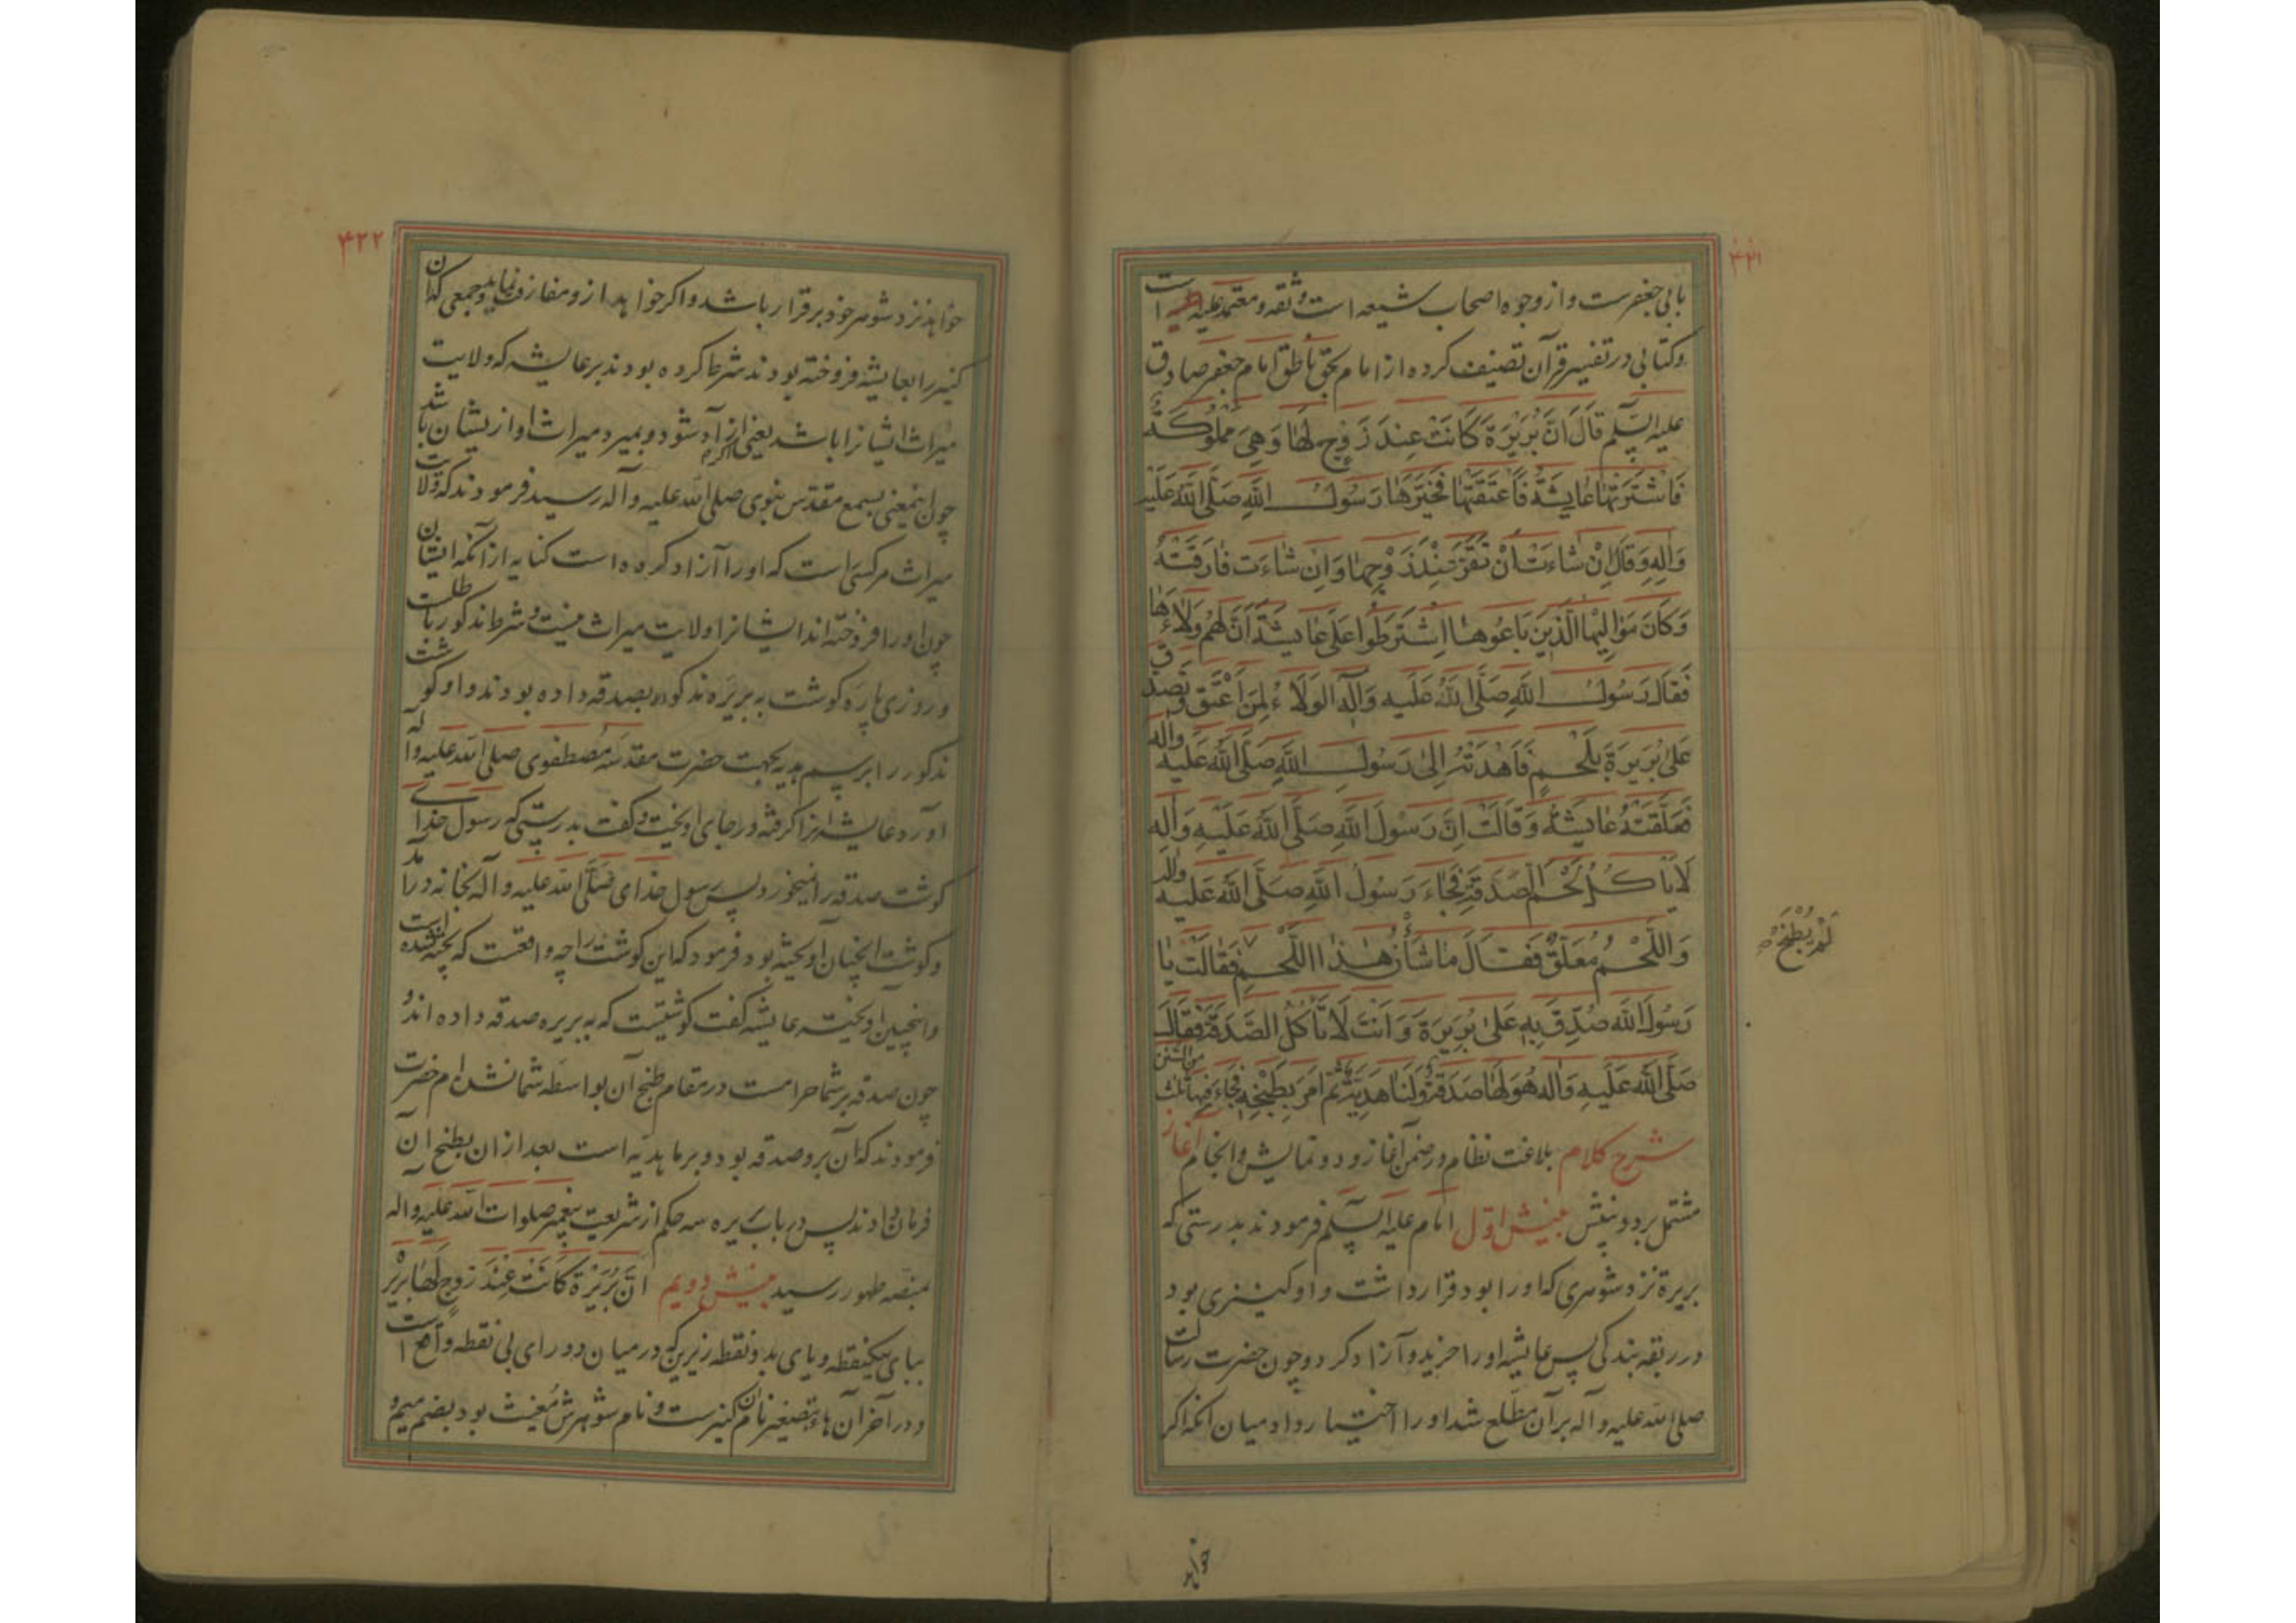 ۴۲۱
بابی جعفرست و از وجوه اصحاب شیعه است و ثقه و معتمد علیه است
و کتابی در تفسیر قرآن تصنیف کرده از امام بحق ناطق امام جعفر صادق
علیه السّلم قَالَ اَنَّ بُرَیْرَةَ کَانَتْ عِندَ زَوْجٍ لَهَا وَهِیَ مَمْلُوکَةٌ
فَاشْتَرَتْهَا عَایِشَةُ فَاَعْتَقَتْهَا فَخَیَّرَهَا رَسُولُ اللهِ صَلَّی اللهُ عَلَیْهِ
وَآلِهِ وَقَالَ اِنْ شَاءَتْ اَنْ تَقَرَّ عِنْدَ زَوْجِهَا وَاِنْ شَاءَتْ فَارَقَتْهُ
وَکَانَ مَوَالِیهَا الَّذِینَ بَاعُوهَا اِشْتَرَطُوا عَلَی عَایِشَةَ اَنَّ لَهُمْ وَلَاءَهَا
فَقَالَ رَسُولُ اللهِ صَلَّی اللهُ عَلَیهِ وَآلِهِ الوَلَاءُ لِمَنْ اَعْتَقَ وَتُصُدِّقَ
عَلَی بُرَیرَةَ بِلَحْمٍ فَاَهْدَتْهُ اِلَی رَسُولِ اللهِ صَلَّی اللهُ عَلَیهِ وَآلِهِ
فَعَلَّقَتْهُ عَایِشَةُ وَقَالَتْ اِنَّ رَسُولَ اللهِ صَلَّی اللهُ عَلَیْهِ وَآلِهِ
لَا یَاْکُلُ لَحْمَ الصَّدَقَةِ فَجَاءَ رَسُولُ اللهِ صَلَّی اللهُ عَلَیهِ وَآلِهِ
وَاللَّحْمُ مُعَلَّقٌ فَقَالَ مَا شَأْنُ هَذَا اللَّحْمِ فَقَالَتْ یَا
لَمْ یُطْبَخْ
رَسُولَ اللهِ صُدِّقَ بِهِ عَلَی بُرَیرَةَ وَاَنْتَ لَا تَأْکُلُ الصَّدَقَةَ فَقَالَ
صَلَّی اللهُ عَلَیهِ وَآلِه هُوَ لَهَا صَدَقَةٌ وَلَنَا هَدِیَّةٌ ثُمَّ اَمَرَ بِطَبْخِهِ فَجَاءَ فِیهَا ثَلَثٌ مِنَ السُّنَنِ
شرح کلام بلاغت نظام در ضمن آغاز و دو نمایش و انجام آغاز
مشتمل بر دو بینش بینش اوّل امام علیه السّلم فرمودند بدرستی که
بریرة نزد شوهری که او را بود قرار داشت و او کنیزی بود
در ربقه بندگی پس عایشه او را خرید و آزاد کرد و چون حضرت رسالت
صلی الله علیه و آله بر آن مطّلع شد او را اختیار داد میان آنکه اگر
خواهد
۴۲۲
خواهد نزد شوهر خود برقرار باشد و اگر خواهد ازو مفارقت نماید و جمعی که آن
کنیز را بعایشه فروخته بودند شرط کرده بودند بر عایشه که ولایت
میراث ایشانرا باشد یعنی اگر آزاد شود و بمیرد میراث او از یشان باشد
چون اینمعنی بسمع مقدّس نبوی صلی الله علیه و آله رسید فرمودند که ولایت
میراث مر کسی است که او را آزاد کرده است کنایه از آنکه ایشان
چون او را فروخته‌اند ایشانرا ولایت میراث نیست و شرط مذکور باطلست
و روزی پاره گوشت به بریره مذکوره بصدقه داده بودند و او گوشت
مذکور را برسم هدیه بجهت حضرت مقدّسه مصطفوی صلی الله علیه و آله
آورد عایشه آنرا گرفته در جای آویخت و گفت بدرستی که رسول خدای
گوشت صدقه را نمیخورد پس رسول خدای صَلَّی الله علیه و آله بخانه درآمد
و گوشت آنچنان آویخته بود فرمود که این گوشت را چه واقعست که پخته نشده است
و اینچنین آویخته عایشه گفت گوشتیست که به بریره صدقه داده‌اند و
چون صدقه بر شما حرامست در مقام طبخ آن بواسطه شما نشده‌ام حضرت
فرمودند که آن برو صدقه بود و بر ما هدیّه است بعد از آن بطبخ آن
فرمان دادند پس در باب بریره سه حکم از شریعت پیغمبر صلوات الله علیه و اله
بمنصّه ظهور رسید بینش دویم اَنَّ بُرَیْرَة کَانَتْ عِنْدَ زوجٍ لَهَا بریر
ببای یکنقطه و یای بدو نقطه زیرین که در میان دو رای بی نقطه واقع است
و در آخر آن هاء بتصغیر نام آن کنیزست و نام شوهرش مُغیث بود بضم میم و